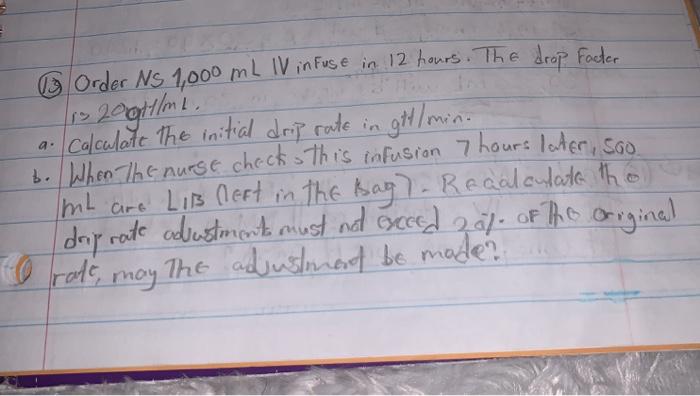 ⑬ Order NS 1,000 mL IV infuse in 12 hours. The drop Facter
is 20gtt/mL.
a. Calculate the initial drip rate in gtt/min.
b. When the nurse checks this infusion 7 hours later, 500
mL are LIB (left in the bag). Recalculate the
drip rate adjustments must not exceed 25% of the original
rate, may the adjustment be made?